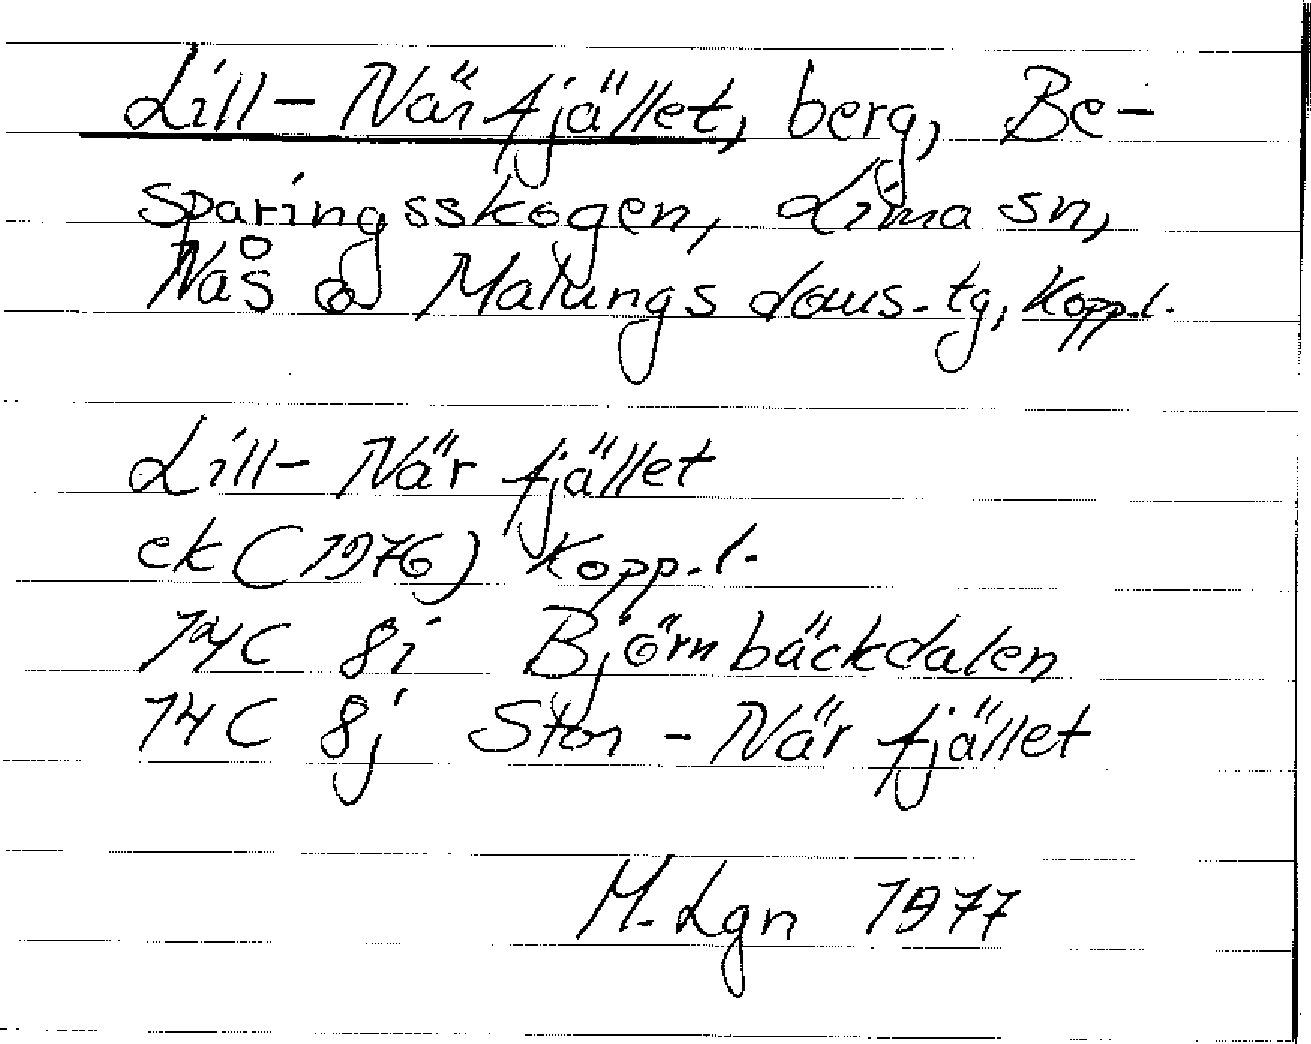 Lill-Närfjället, berg, Be-
sparingsskogen, Lima sn,
Nås o Malungs doms.tg, Kopp.l.
Lill-Närfjället
ek (1976) Kopp.l.
14C 8i Björnbäckdalen
14C 8j Stor-Närfjället
M.Lgn 1977